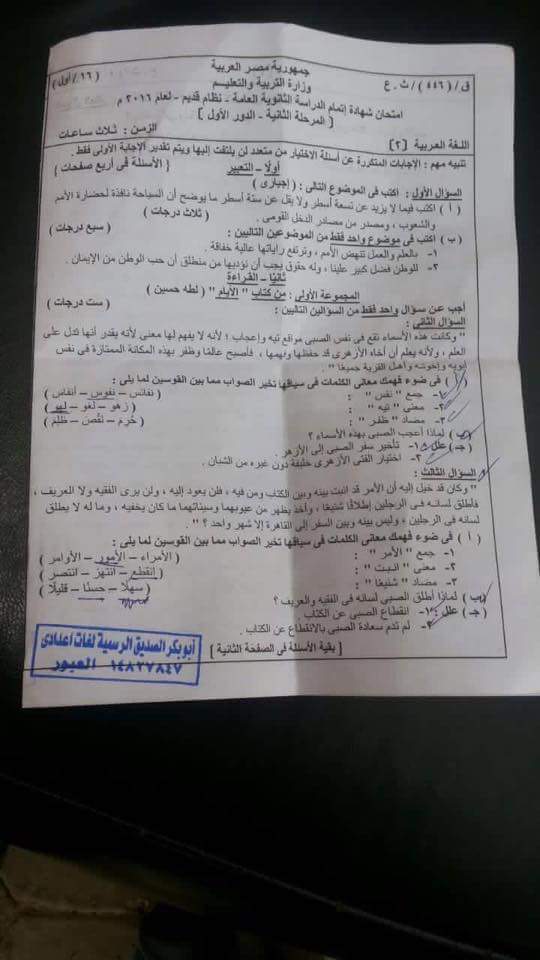 جمهورية مصر العربية
وزارة التربية والتعليم
ق/( ٤٤٦ )/ث.ع
( ١٦/أول )
امتحان شهادة إتمام الدراسة الثانوية العامة - نظام قديم - لعام ٢٠١٦ م
[ المرحلة الثانية - الدور الأول ]
اللغة العربية [٢]
الزمن : ثلاث ساعات
تنبيه مهم : الإجابات المتكررة عن أسئلة الاختيار من متعدد لن يلتفت إليها ويتم تقدير الإجابة الأولى فقط .
أولًا – التعبير
( الأسئلة فى أربع صفحات )
السؤال الأول : اكتب فى الموضوع التالى : ( إجبارى )
( أ ) اكتب فيما لا يزيد عن تسعة أسطر ولا يقل عن ستة أسطر ما يوضح أن السياحة نافذة لحضارة الأمم
والشعوب ، ومصدر من مصادر الدخل القومى . ( ثلاث درجات )
(ب) اكتب فى موضوع واحد فقط من الموضوعين التاليين : ( سبع درجات )
١- بالعلم والعمل تنهض الأمم ، وترتفع راياتها عالية خفاقة .
٢- للوطن فضل كبير علينا ، وله حقوق يجب أن نؤديها من منطلق أن حب الوطن من الإيمان .
ثانيًا – القراءة
المجموعة الأولى : من كتاب " الأيام " ( لطه حسين )
أجب عن سؤال واحد فقط من السؤالين التاليين : ( ست درجات )
السؤال الثانى :
" وكانت هذه الأسماء تقع فى نفس الصبى مواقع تيه وإعجاب ؛ لأنه لا يفهم لها معنى لأنه يقدر أنها تدل على
العلم ، ولأنه يعلم أن أخاه الأزهرى قد حفظها وفهمها ، فأصبح عالمًا وظفر بهذه المكانة الممتازة فى نفس
أبويه وإخوته وأهل القرية جميعًا " .
( أ ) فى ضوء فهمك معانى الكلمات فى سياقها تخير الصواب مما بين القوسين لما يلى :
١- جمع " نفس " : ( نفائس – نفوس – أنفاس )
٢- معنى " تيه " : ( زهو – لغو – لهو )
٣- مضاد " ظفر " : ( حُرِم – نقُص – ظُلِم )
(ب) لماذا أعجب الصبى بهذه الأسماء ؟
(جـ) علل : ١- تأخير سفر الصبى إلى الأزهر .
٢- اختيار الفتى الأزهرى خليفة دون غيره من الشبان .
السؤال الثالث :
" وكان قد خيل إليه أن الأمر قد انبت بينه وبين الكتاب ومن فيه ، فلن يعود إليه ، ولن يرى الفقيه ولا العريف ،
فأطلق لسانه فى الرجلين إطلاقًا شنيعًا ، وأخذ يظهر من عيوبهما وسيئاتهما ما كان يخفيه ، وما له لا يطلق
لسانه فى الرجلين ، وليس بينه وبين السفر إلى القاهرة إلا شهر واحد ؟ " .
( أ ) فى ضوء فهمك معانى الكلمات فى سياقها تخير الصواب مما بين القوسين لما يلى :
١- جمع " الأمر " : ( الأمراء – الأمور – الأوامر )
٢- معنى " انبت " : ( انقطع – انتهز – انتصر )
٣- مضاد " شنيعًا " : ( سهلًا – حسنًا – قليلًا )
(ب) لماذا أطلق الصبى لسانه فى الفقيه والعريف ؟
(جـ) علل : ١- انقطاع الصبى عن الكتاب .
٢- لم تدم سعادة الصبى بالانقطاع عن الكتاب .
[ بقية الأسئلة فى الصفحة الثانية ]
أبو بكر الصديق الرسمية لغات اعدادى
١٤٨٢٧٨٤٧ العبور